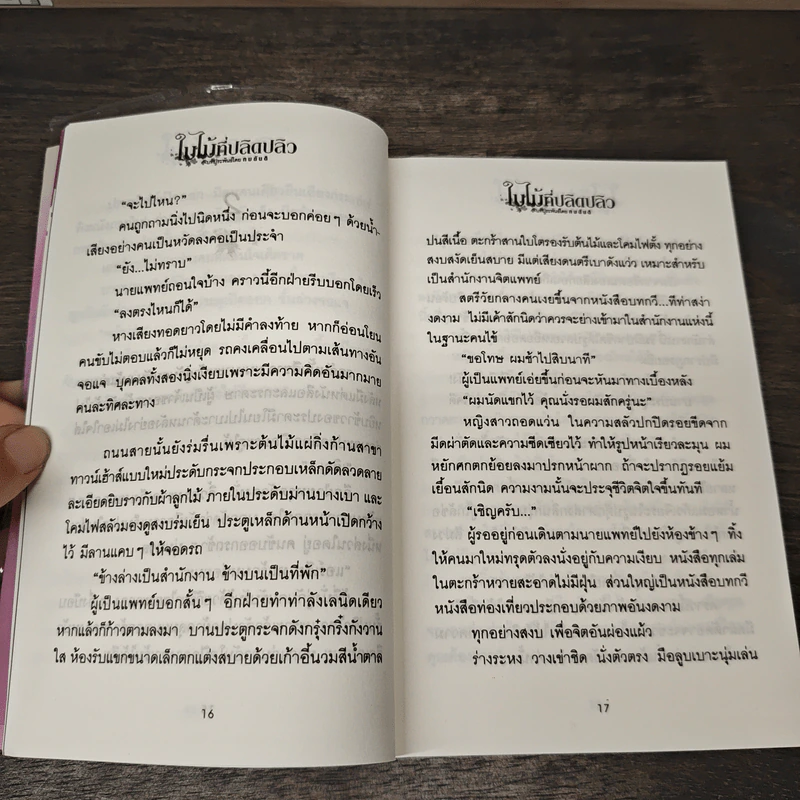 ใบไม้ที่ปลิดปลิว
บทประพันธ์โดย ทมยันตี
“จะไปไหน?”
คนถูกถามนิ่งไปนิดหนึ่ง ก่อนจะบอกค่อยๆ ด้วยน้ำ-
เสียงอย่างคนเป็นหวัดลงคอเป็นประจำ
“ยัง...ไม่ทราบ”
นายแพทย์ถอนใจบ้าง คราวนี้อีกฝ่ายรีบบอกโดยเร็ว
“ลงตรงไหนก็ได้”
หางเสียงทอดยาวโดยไม่มีคำลงท้าย หากก็อ่อนโยน
คนขับไม่ตอบแล้วก็ไม่หยุด รถคงเคลื่อนไปตามเส้นทางอัน
จอแจ บุคคลทั้งสองนิ่งเงียบเพราะมีความคิดอันมากมาย
คนละทิศละทาง
ถนนสายนั้นยังร่มรื่นเพราะต้นไม้แผ่กิ่งก้านสาขา
ทาวน์เฮ้าส์แบบใหม่ประดับกระจกประกอบเหล็กดัดลวดลาย
ละเอียดยิบราวกับผ้าลูกไม้ ภายในประดับม่านบางเบา และ
โคมไฟสลัวมองดูสงบร่มเย็น ประตูเหล็กด้านหน้าเปิดกว้าง
ไว้ มีลานแคบๆ ให้จอดรถ
“ข้างล่างเป็นสำนักงาน ข้างบนเป็นที่พัก”
ผู้เป็นแพทย์บอกสั้นๆ อีกฝ่ายทำท่าลังเลนิดเดียว
หากแล้วก็ก้าวตามลงมา บานประตูกระจกดังกรุ๋งกริ๋งกังวาน
ใส ห้องรับแขกขนาดเล็กตกแต่งสบายด้วยเก้าอี้นวมสีน้ำตาล
16
ใบไม้ที่ปลิดปลิว
บทประพันธ์โดย ทมยันตี
ปนสีเนื้อ ตะกร้าสานใบโตรองรับต้นไม้และโคมไฟตั้ง ทุกอย่าง
สงบสงัดเย็นสบาย มีแต่เสียงดนตรีเบาดังแว่ว เหมาะสำหรับ
เป็นสำนักงานจิตแพทย์
สตรีวัยกลางคนเงยขึ้นจากหนังสือบทกวี...ทีท่าสง่า
งดงาม ไม่มีเค้าสักนิดว่าควรจะย่างเข้ามาในสำนักงานแห่งนี้
ในฐานะคนไข้
“ขอโทษ ผมช้าไปสิบนาที”
ผู้เป็นแพทย์เอ่ยขึ้นก่อนจะหันมาทางเบื้องหลัง
“ผมนัดแขกไว้ คุณนั่งรอผมสักครู่นะ”
หญิงสาวถอดแว่น ในความสลัวปกปิดรอยขีดจาก
มีดผ่าตัดและความซีดเซียวไว้ ทำให้รูปหน้าเรียวละมุน ผม
หยักศกตกย้อยลงมาปรกหน้าผาก ถ้าจะปรากฏรอยแย้ม
เยื้อนสักนิด ความงามนั้นจะประจุชีวิตจิตใจขึ้นทันที
“เชิญครับ...”
ผู้รออยู่ก่อนเดินตามนายแพทย์ไปยังห้องข้างๆ ทิ้ง
ให้คนมาใหม่ทรุดตัวลงนั่งอยู่กับความเงียบ หนังสือทุกเล่ม
ในตะกร้าหวายสะอาดไม่มีฝุ่น ส่วนใหญ่เป็นหนังสือบทกวี
หนังสือท่องเที่ยวประกอบด้วยภาพอันงดงาม
ทุกอย่างสงบ เพื่อจิตอันผ่องแผ้ว
ร่างระหง วางเข่าชิด นั่งตัวตรง มือลูบเบาะนุ่มเล่น
17